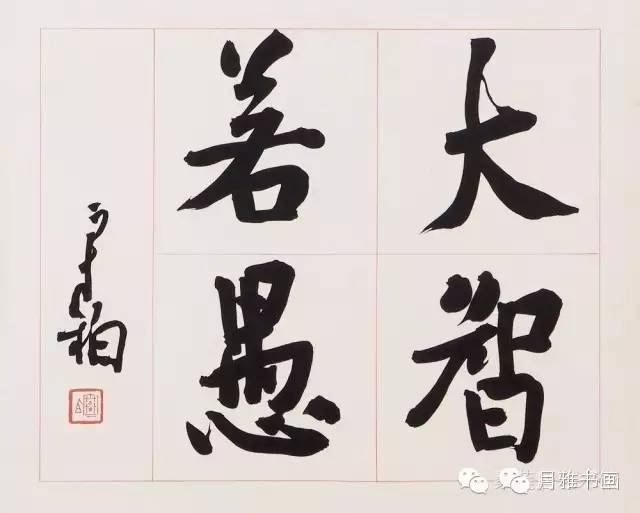 大智
若愚
月雅书画